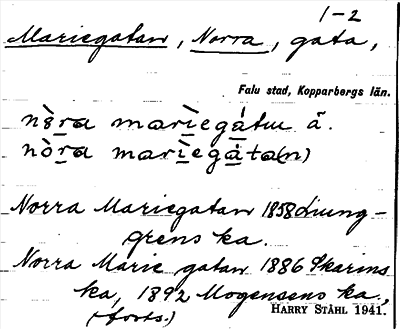 1-2
Mariegatan, Norra, gata,
Falu stad, Kopparbergs län.
nòra marìegátu ä.
nòra marìegáta(n)
Norra Mariegatan 1858 Ljung-
grens ka.
Norra Marie gatan 1886 Skarins
ka, 1892 Mogensens ka.,
(forts.)
HARRY STÅHL 1941.